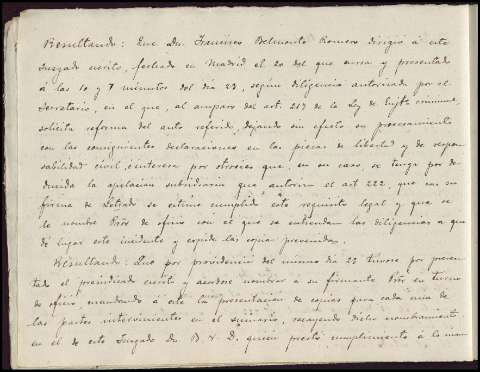 Resultando: Que Dn. Francisco Belmonte Romero dirigió á este
Juzgado escrito, fechado en Madrid el 20 del que cursa y presentado
á las 10 y 7 minutos del dia 23, según diligencia autorizada por el
Secretario, en el que, al amparo del art. 217 de la Ley de Enjto criminal,
solicita reforma del auto referido, dejando sin efecto su procesamiento
con las consiguientes declaraciones en las piezas de libertad y de respon-
sabilidad civil, é interesa por otrosies que, en su caso, se tenga por de-
ducida la apelación subsidiaria que autoriza el art 222, que con su
firma de Letrado se estime cumplido este requisito legal y que se
le nombre Prór de oficio con el que se entiendan las diligencias a que
dé lugar este incidente y expide las copias prevenidas.
Resultando: Que por providencia del mismo dia 23 túvose por presen-
tado el preindicado escrito y acordose nombrar a su firmante Prór en turno
de oficio mandando á éste la presentacion de copias para cada una de
las partes intervinientes en el sumario, recayendo dicho nombramiento
en el de este Juzgado Dn B. D. quien prestó cumplimiento á lo man